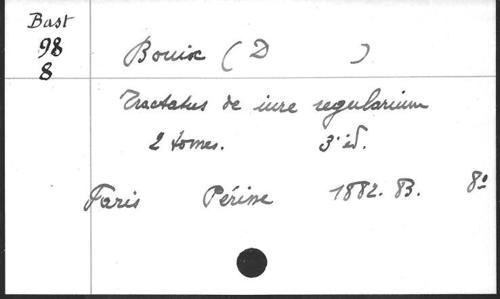 Bast
98
8
Bouix (D )
Tractatus de iure regularium
2 tomes. 3e éd.
Paris Périsse 1882. 83. 8º